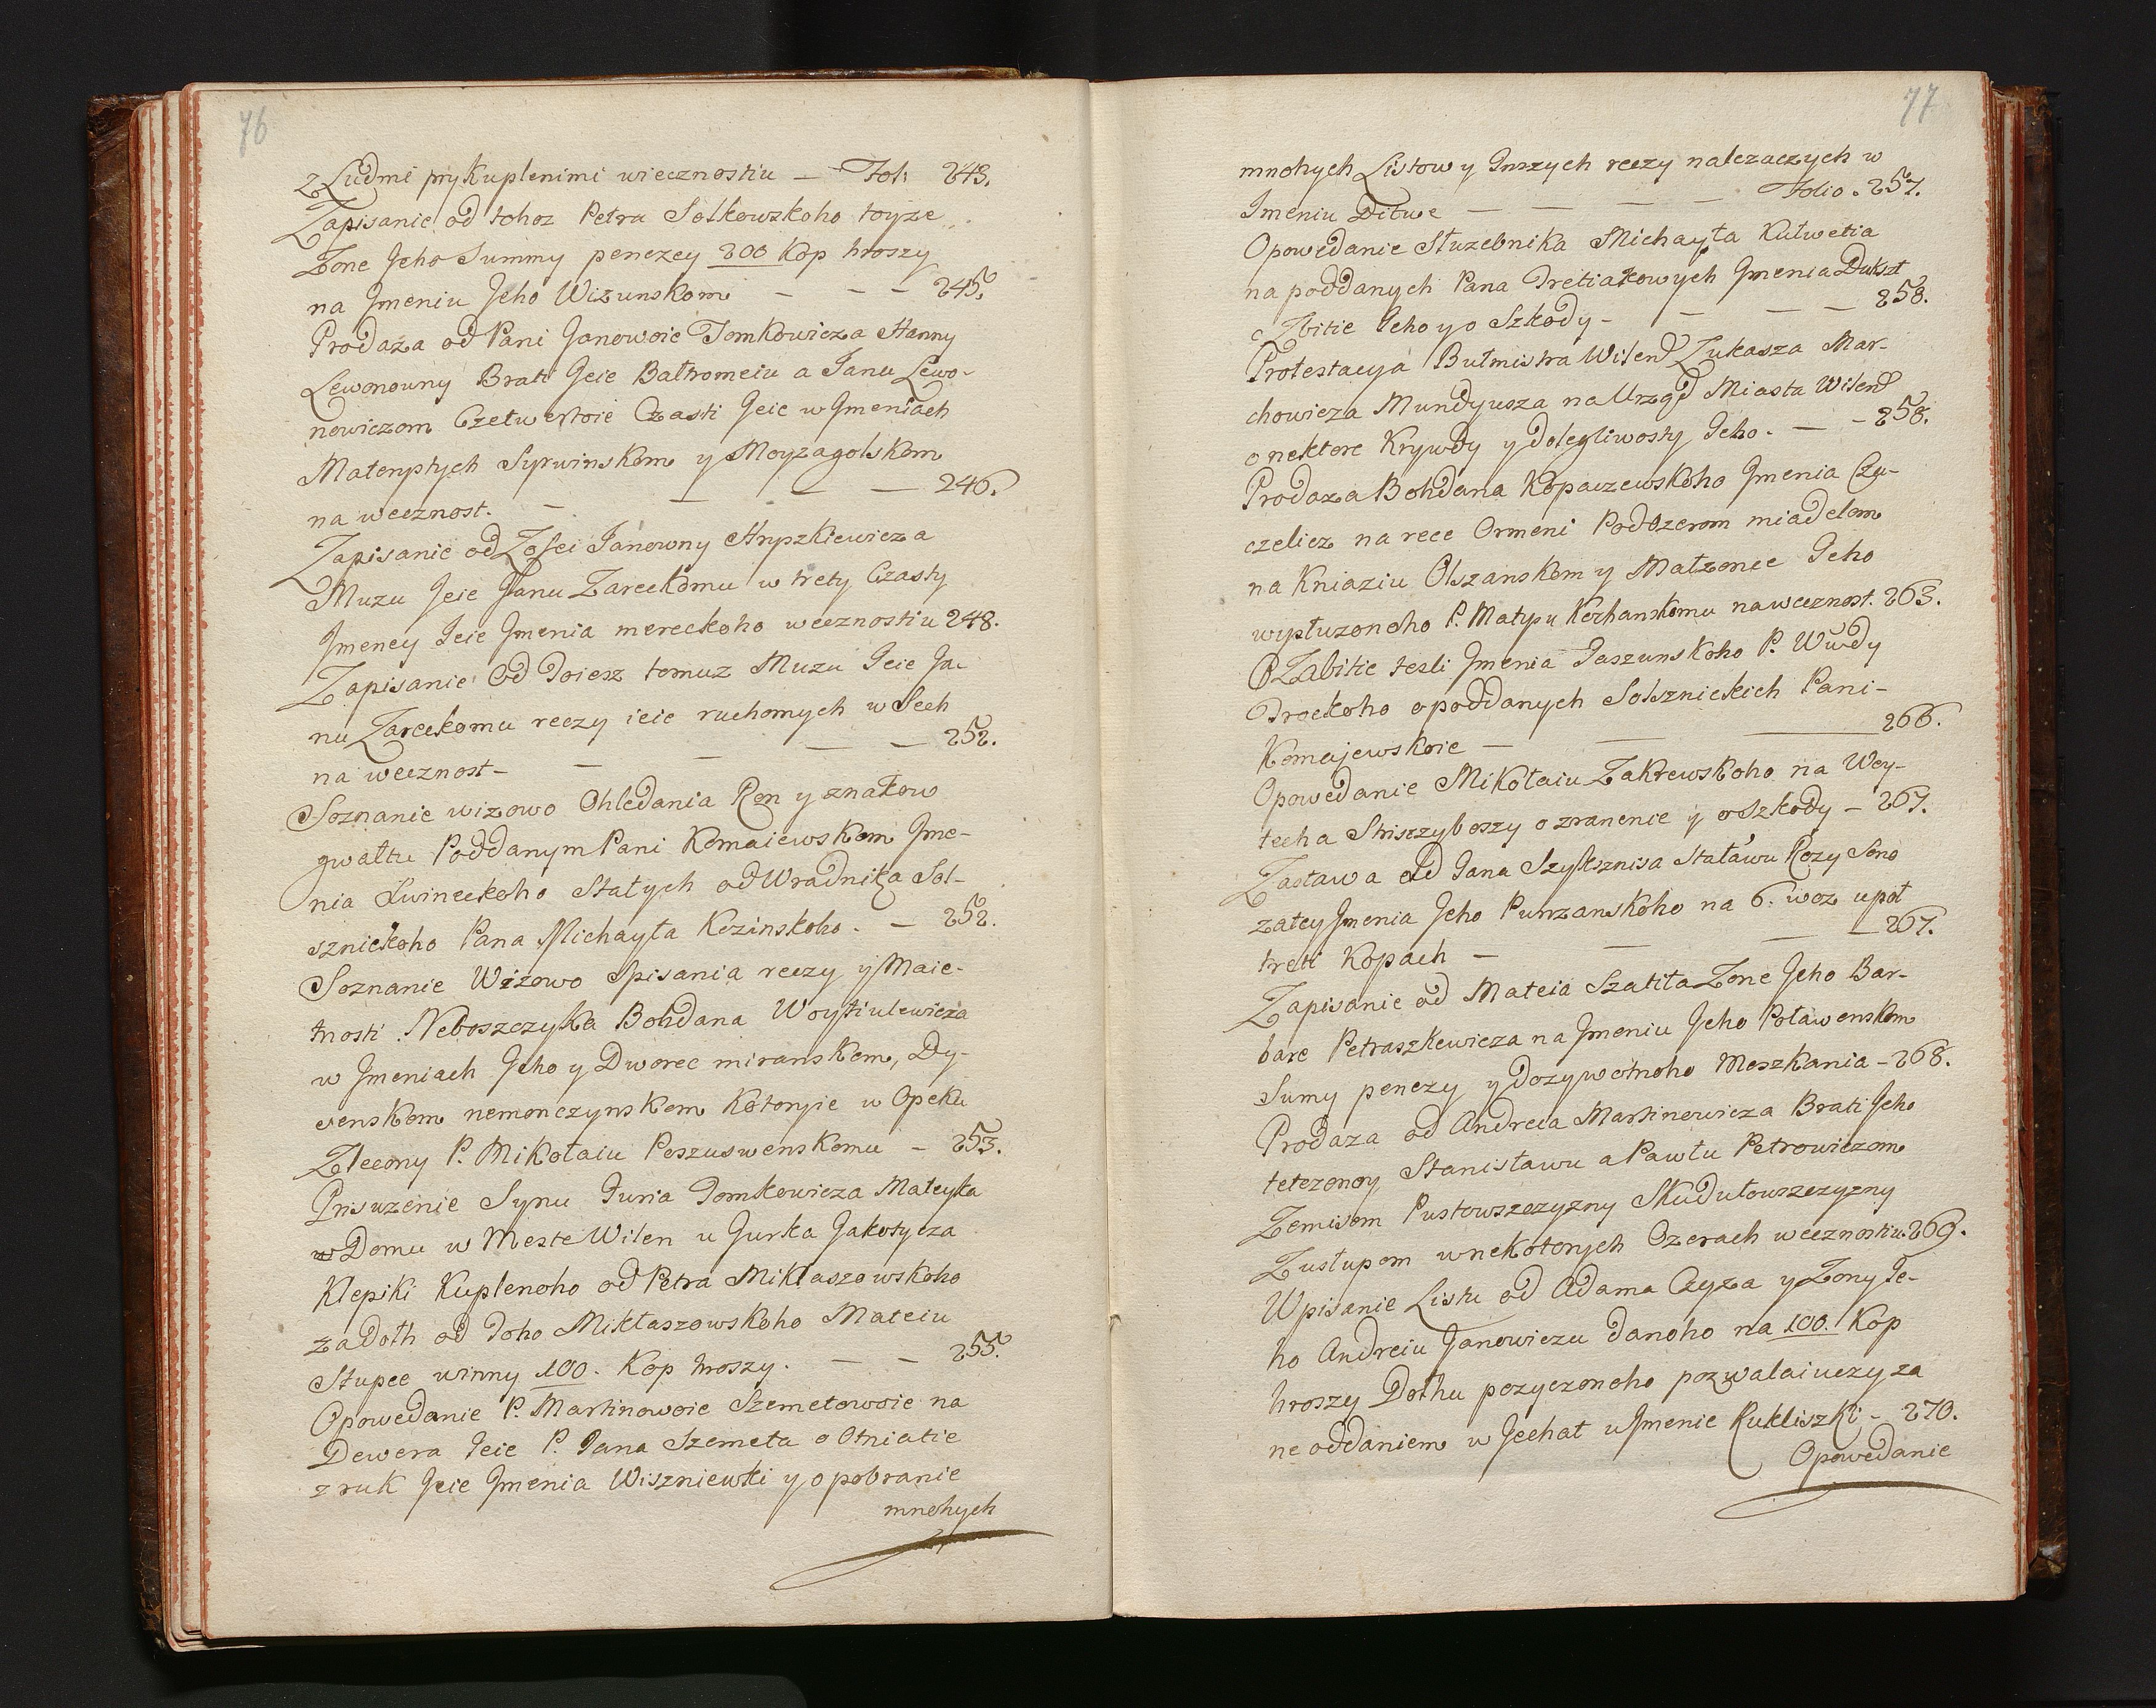 76
z Ludmi prykuplenimi wiecznostiu — Fol: 243.
Zapisanie od tohoz Petra Solkowskoho toyze
Zone Jeho Summy penezey 200 Kop hroszy
na Jmeniu Jeho Wizunskom — — — 245.
Prodaza od Pani Janowoie Tomkowicza Hanny
Lewonowny Brati Jeie Baltromeiu a Janu Lewo-
nowiczom Czetwertoie Czasti Jeie w Jmeniach
Materystych Syrwinskom y Moyzagolskom
na wecznost. — — — — 246.
Zapisanie od Zofei Janowny Hryszkiewicza
Muzu Jeie Janu Zareckomu w trety Czasty
Jmeney Jeie Jmenia mereckoho wecznostiu 248.
Zapisanie Od Toiesz tomuz Muzu Jeie Ja-
nu Zareckomu reczy ieie ruchomych w Sech
na wecznost — — — — — 252.
Soznanie wizowo Ohledania Ron y znakow
gwaltu Poddanym Pani Komaiewskom Jme-
nia Swineckoho Stalych od Wradnika Sol-
sznickoho Pana Michayła Kozinskoho. — 252.
Soznanie Wizowo Spisania reczy y Maie-
tnosti Neboszczyka Bohdana Woytiulewicza
w Jmeniach Jeho y Dworec miranskom, Dy-
wenskom nemonczynskom Kotoryie w Opeku
Zlecony P. Mikołaiu Poszuswenskomu — 253.
Prisuzenie Synu Juria Tomkowicza Mateyka
w Domu w Meste Wilen u Jurka Jakotycza
Klepiki Kuplenoho od Petra Miklaszowskoho
za Dołh od Toho Mikłaszowskoho Mateiu
Stupce winny 100. Kop hroszy. — — 255.
Opowedanie P. Martinowoie Szemetowoie na
Dewera Jeie P. Jana Szemeta o Otniatie
z ruk Jeie Jmenia Wiszniewki y o pobranie
mnohych
77
mnohych Listow y Jnszych reczy nalezaczych w
Jmeniu Ditwe — — — — Folio. 257.
Opowedanie Służebnika Michayła Kutwetia
na poddanych Pana Tretiakowych Jmenia Dukszt
o Zbitie Jeho y o Szkody — — — — 258.
Protestacya Bulmistra Wilend Lukasza Mar-
chowicza Mundyusza na Urząd Miasta Wilend
o nektore Krywdy y dolegliwosty Jeho. — — 258.
Prodaza Bohdana Kopaczewskoho Jmenia Czu-
czelicz na rece Ormeni Pod Ozerom miadelom
na Kniaziu Olszanskom y Małzonce Jeho
wysłuzonoho P. Matysu Kozhanskomu na wecznost. 263.
O Zabitie tesli Jmenia Jaszunskoho P. Wwdy
Trockoho o poddanych Solsznickich Pani-
Komajewskoie — — — 266.
Opowedanie Mikołaiu Zakrewskoho na Woy-
techa Striszyboszy o zranenie y o Szkody — 267.
Zastawa od Jana Szyksznisa Stalawu Rozy Seno
zatey Jmenia Jeho Punzanskoho na 6. woz u poł
treti Kopach — — — — 267.
Zapisanie od Mateia Szatiła Zone Jeho Bar-
bare Petraszkewicza na Jmeniu Jeho Poławenskom
Sumy penezy y dozywotnoho Meszkania — 268.
Prodaza od Andreia Martinowicza Brati Jeho
tetezonoy Stanisławu a Pawłu Petrowiczom
Zemisom Pustowszczyzny Skudułowszczyzny
Zustupom w nekotorych Ozerach wecznostiu. 269.
Wpisanie Listu od Adama Czyza y Zony Je-
ho Andreiu Janowiczu danoho na 100. Kop
hroszy Dołhu pozyczonoho pozwalaiuczy za
ne oddaniem w Jechat w Jmenie Rukliszki — 270.
Opowedanie